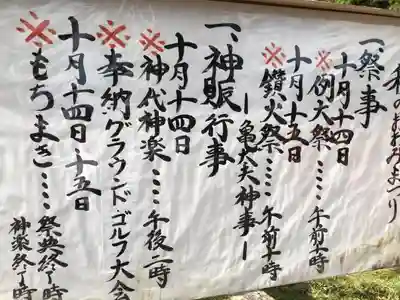 秋のおおみまつり
一、祭事
十月十四日
※例大祭……午前十時
十月十五日
※鑚火祭……午前十時
―亀太夫神事―
一、神賑行事
十月十四日
※神代神楽……午後一時
※奉納グラウンドゴルフ大会
十月十四日・十五日
※もちまき……祭典終了時
神楽終了時